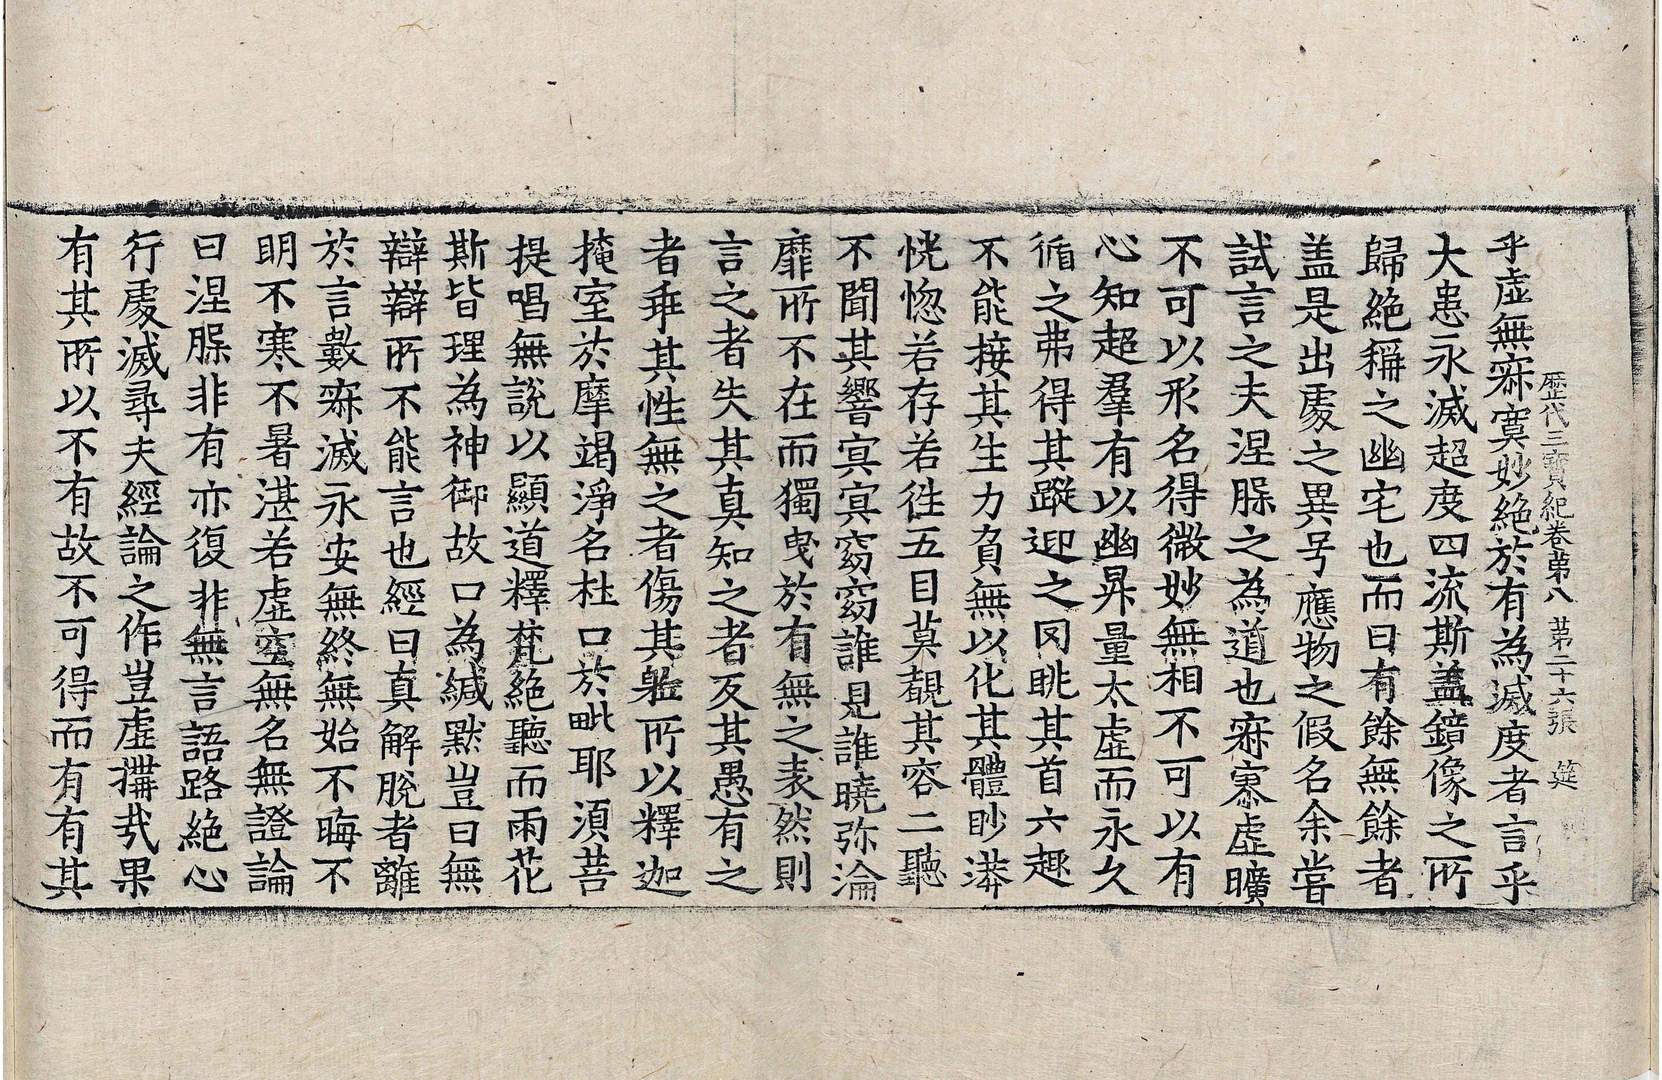 歷代三寶紀卷第八 第二十六張 筵
乎虛無寂寞妙絕於有為滅度者言乎
大患永滅超度四流斯盖鏡像之所
歸絕稱之幽宅也而曰有餘無餘者
盖是出處之異号應物之假名余嘗
試言之夫涅槃之為道也寂寥虛曠
不可以形名得微妙無相不可以有
心知超羣有以幽昇量太虛而永久
循之弗得其蹤迎之罔眺其首六趣
不能接其生力負無以化其體眇漭
恍惚若存若往五目莫覩其容二聽
不聞其響冥冥窈窈誰見誰曉弥淪
靡所不在而獨曳於有無之表然則
言之者失其真知之者反其愚有之
者乖其性無之者傷其軀所以釋迦
掩室於摩竭淨名杜口於毗耶須菩
提唱無說以顯道釋梵絕聽而雨花
斯皆理為神御故口為緘默豈曰無
辯辯所不能言也經曰真解脫者離
於言數寂滅永安無終無始不晦不
明不寒不暑湛若虛空無名無證論
曰涅槃非有亦復非無言語路絕心
行處滅尋夫經論之作豈虛搆哉果
有其所以不有故不可得而有有其